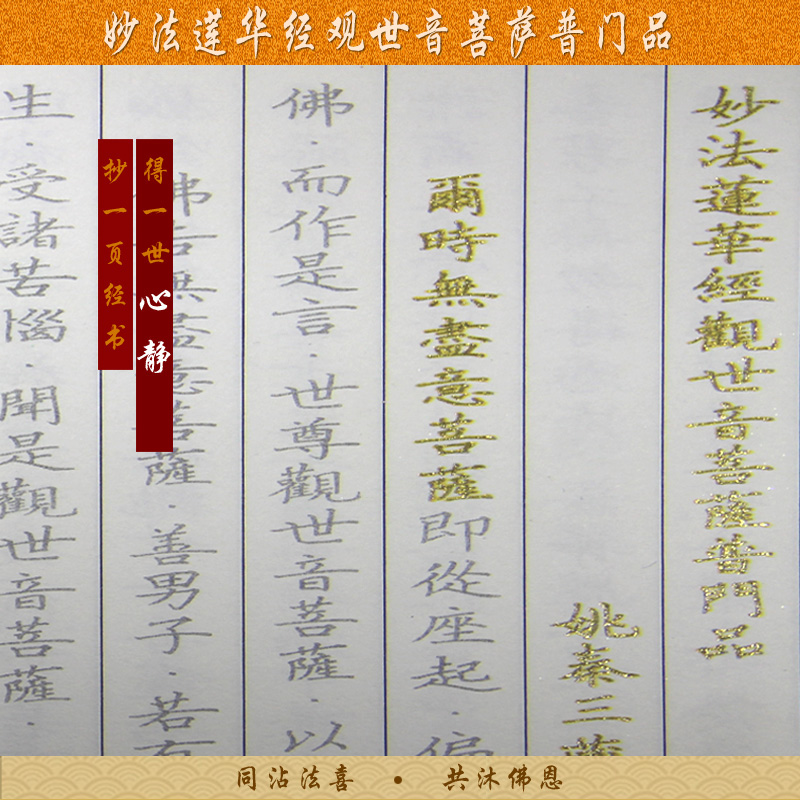 妙法莲华经观世音菩萨普门品
妙法蓮華經觀世音菩薩普門品
姚秦三
爾時無盡意菩薩即從座起．偏
佛．而作是言．世尊觀世音菩薩．以
佛告無盡意菩薩．善男子．若有
生．受諸苦惱．聞是觀世音菩薩．
得一世心静
抄一页经书
同沾法喜 • 共沐佛恩